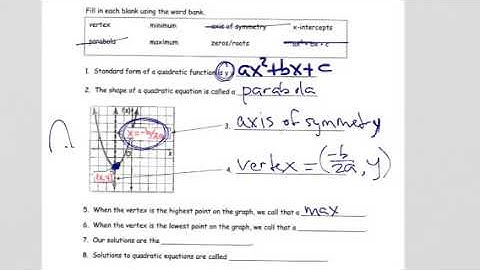 Fill in each blank using the word bank.
vertex minimum axis of symmetry x-intercepts
parabola maximum zeros/roots ax²+bx+c
1. Standard form of a quadratic function is y = ax²+bx+c
2. The shape of a quadratic equation is called a parabola
f(x)
x = -b/2a
x
3. axis of symmetry
(x,y)
4. vertex = (-b/2a, y)
5. When the vertex is the highest point on the graph, we call that a max
6. When the vertex is the lowest point on the graph, we call that a
7. Our solutions are the
8. Solutions to quadratic equations are called